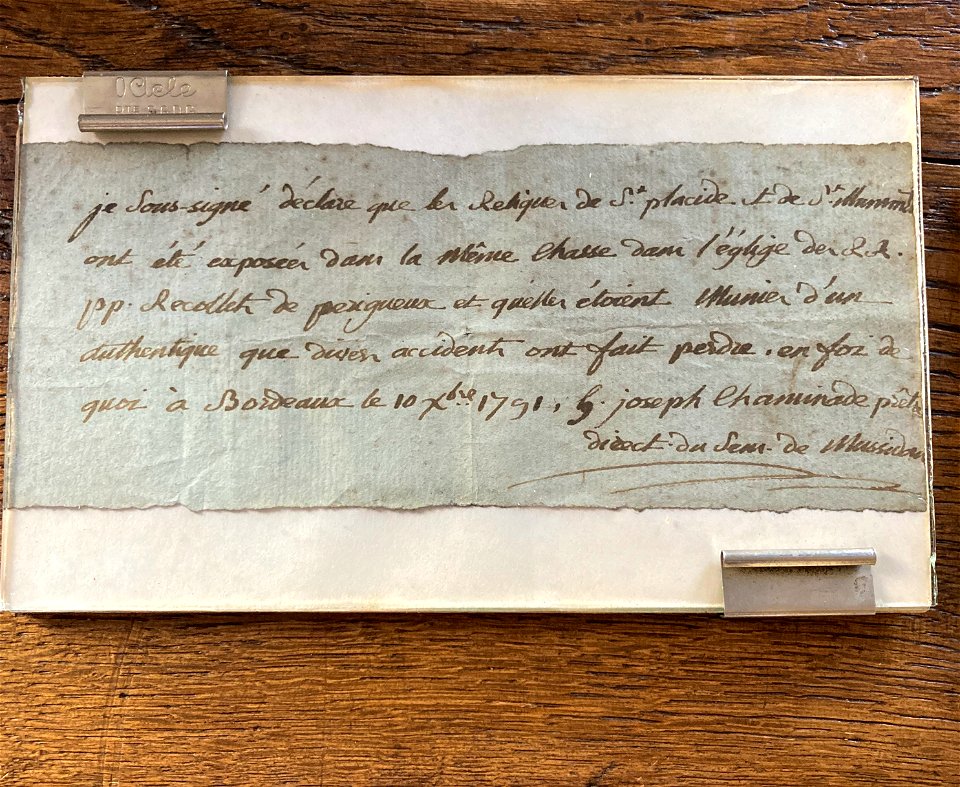 Idele
DIESEDE
je sous-signé déclare que les Reliques de St. placide & de St.
ont été exposées dans la même Chasse dans l'église des R.R.
pp. Recollets de perigueux et qu'elles étoient Munies d'un
authentique que divers accidents ont fait perdre. en foi de
quoi à Bordeaux le 10 Xbre 1791, G. joseph Chaminade prêtre
direct. du Sem. de Mussidan